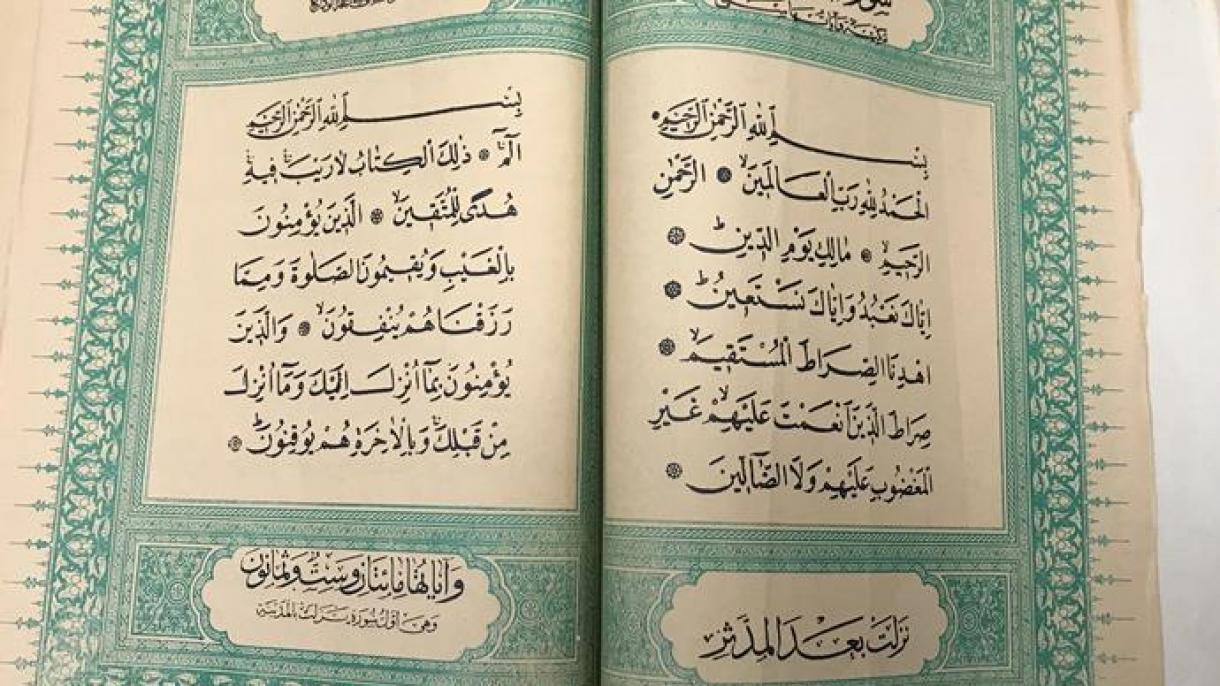 مكية وآياتها سبع
بِسْمِ اللّٰهِ الرَّحْمٰنِ الرَّحِيمِ
اَلْحَمْدُ لِلّٰهِ رَبِّ الْعَالَمِينَۙ ۞ اَلرَّحْمٰنِ
الرَّحِيمِۙ ۞ مَالِكِ يَوْمِ الدِّينِۜ ۞
اِيَّاكَ نَعْبُدُ وَاِيَّاكَ نَسْتَعِينُۜ ۞
اِهْدِنَا الصِّرَاطَ الْمُسْتَقِيمَۙ ۞
صِرَاطَ الَّذِينَ اَنْعَمْتَ عَلَيْهِمْۙ غَيْرِ
الْمَغْضُوبِ عَلَيْهِمْ وَلَا الضَّٓالِّينَ ۞
نزلت بعد المدثر
بِسْمِ اللّٰهِ الرَّحْمٰنِ الرَّحِيمِ
الٓمٓۚ ۞ ذٰلِكَ الْكِتَابُ لَا رَيْبَۚ فِيهِۚ
هُدًى لِلْمُتَّقِينَۙ ۞ اَلَّذِينَ يُؤْمِنُونَ
بِالْغَيْبِ وَيُقِيمُونَ الصَّلٰوةَ وَمِمَّا
رَزَقْنَاهُمْ يُنْفِقُونَۙ ۞ وَالَّذِينَ
يُؤْمِنُونَ بِمَٓا اُنْزِلَ اِلَيْكَ وَمَٓا اُنْزِلَ
مِنْ قَبْلِكَۚ وَبِالْاٰخِرَةِ هُمْ يُوقِنُونَۜ ۞
وآياتها مائتان وست وثمانون
وهي أول سورة نزلت بالمدينة